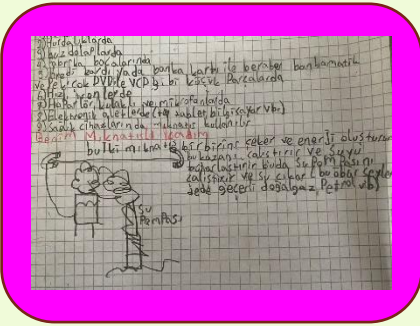 2) Buzdolaplarda
4) Fabrika bacalarında
5) kredi kardı yada banka kartı ile beraber bankamatik
ve pek çok DVD ile VCD gibi küçük Parçalarda
6) Hızlı trenlerde
7) Hoparlör, kulaklık ve mikrofonlarda
8) Elektronik aletlerde (tablet, bilgisayar vb.)
9) Sağlık cihazlarında mıknatıs kullanılır
Benim Mıknatıslı icadım
bu iki mıknatıs birbirini çeker ve enerji oluşturur
bu kazanı çalıştırır ve suyu
buharlaştırır buda su pompasını
çalıştırır ve su çıkar bu abar şeyler
dede geçerli doğalgaz Petrol vb)
Su
Pompası